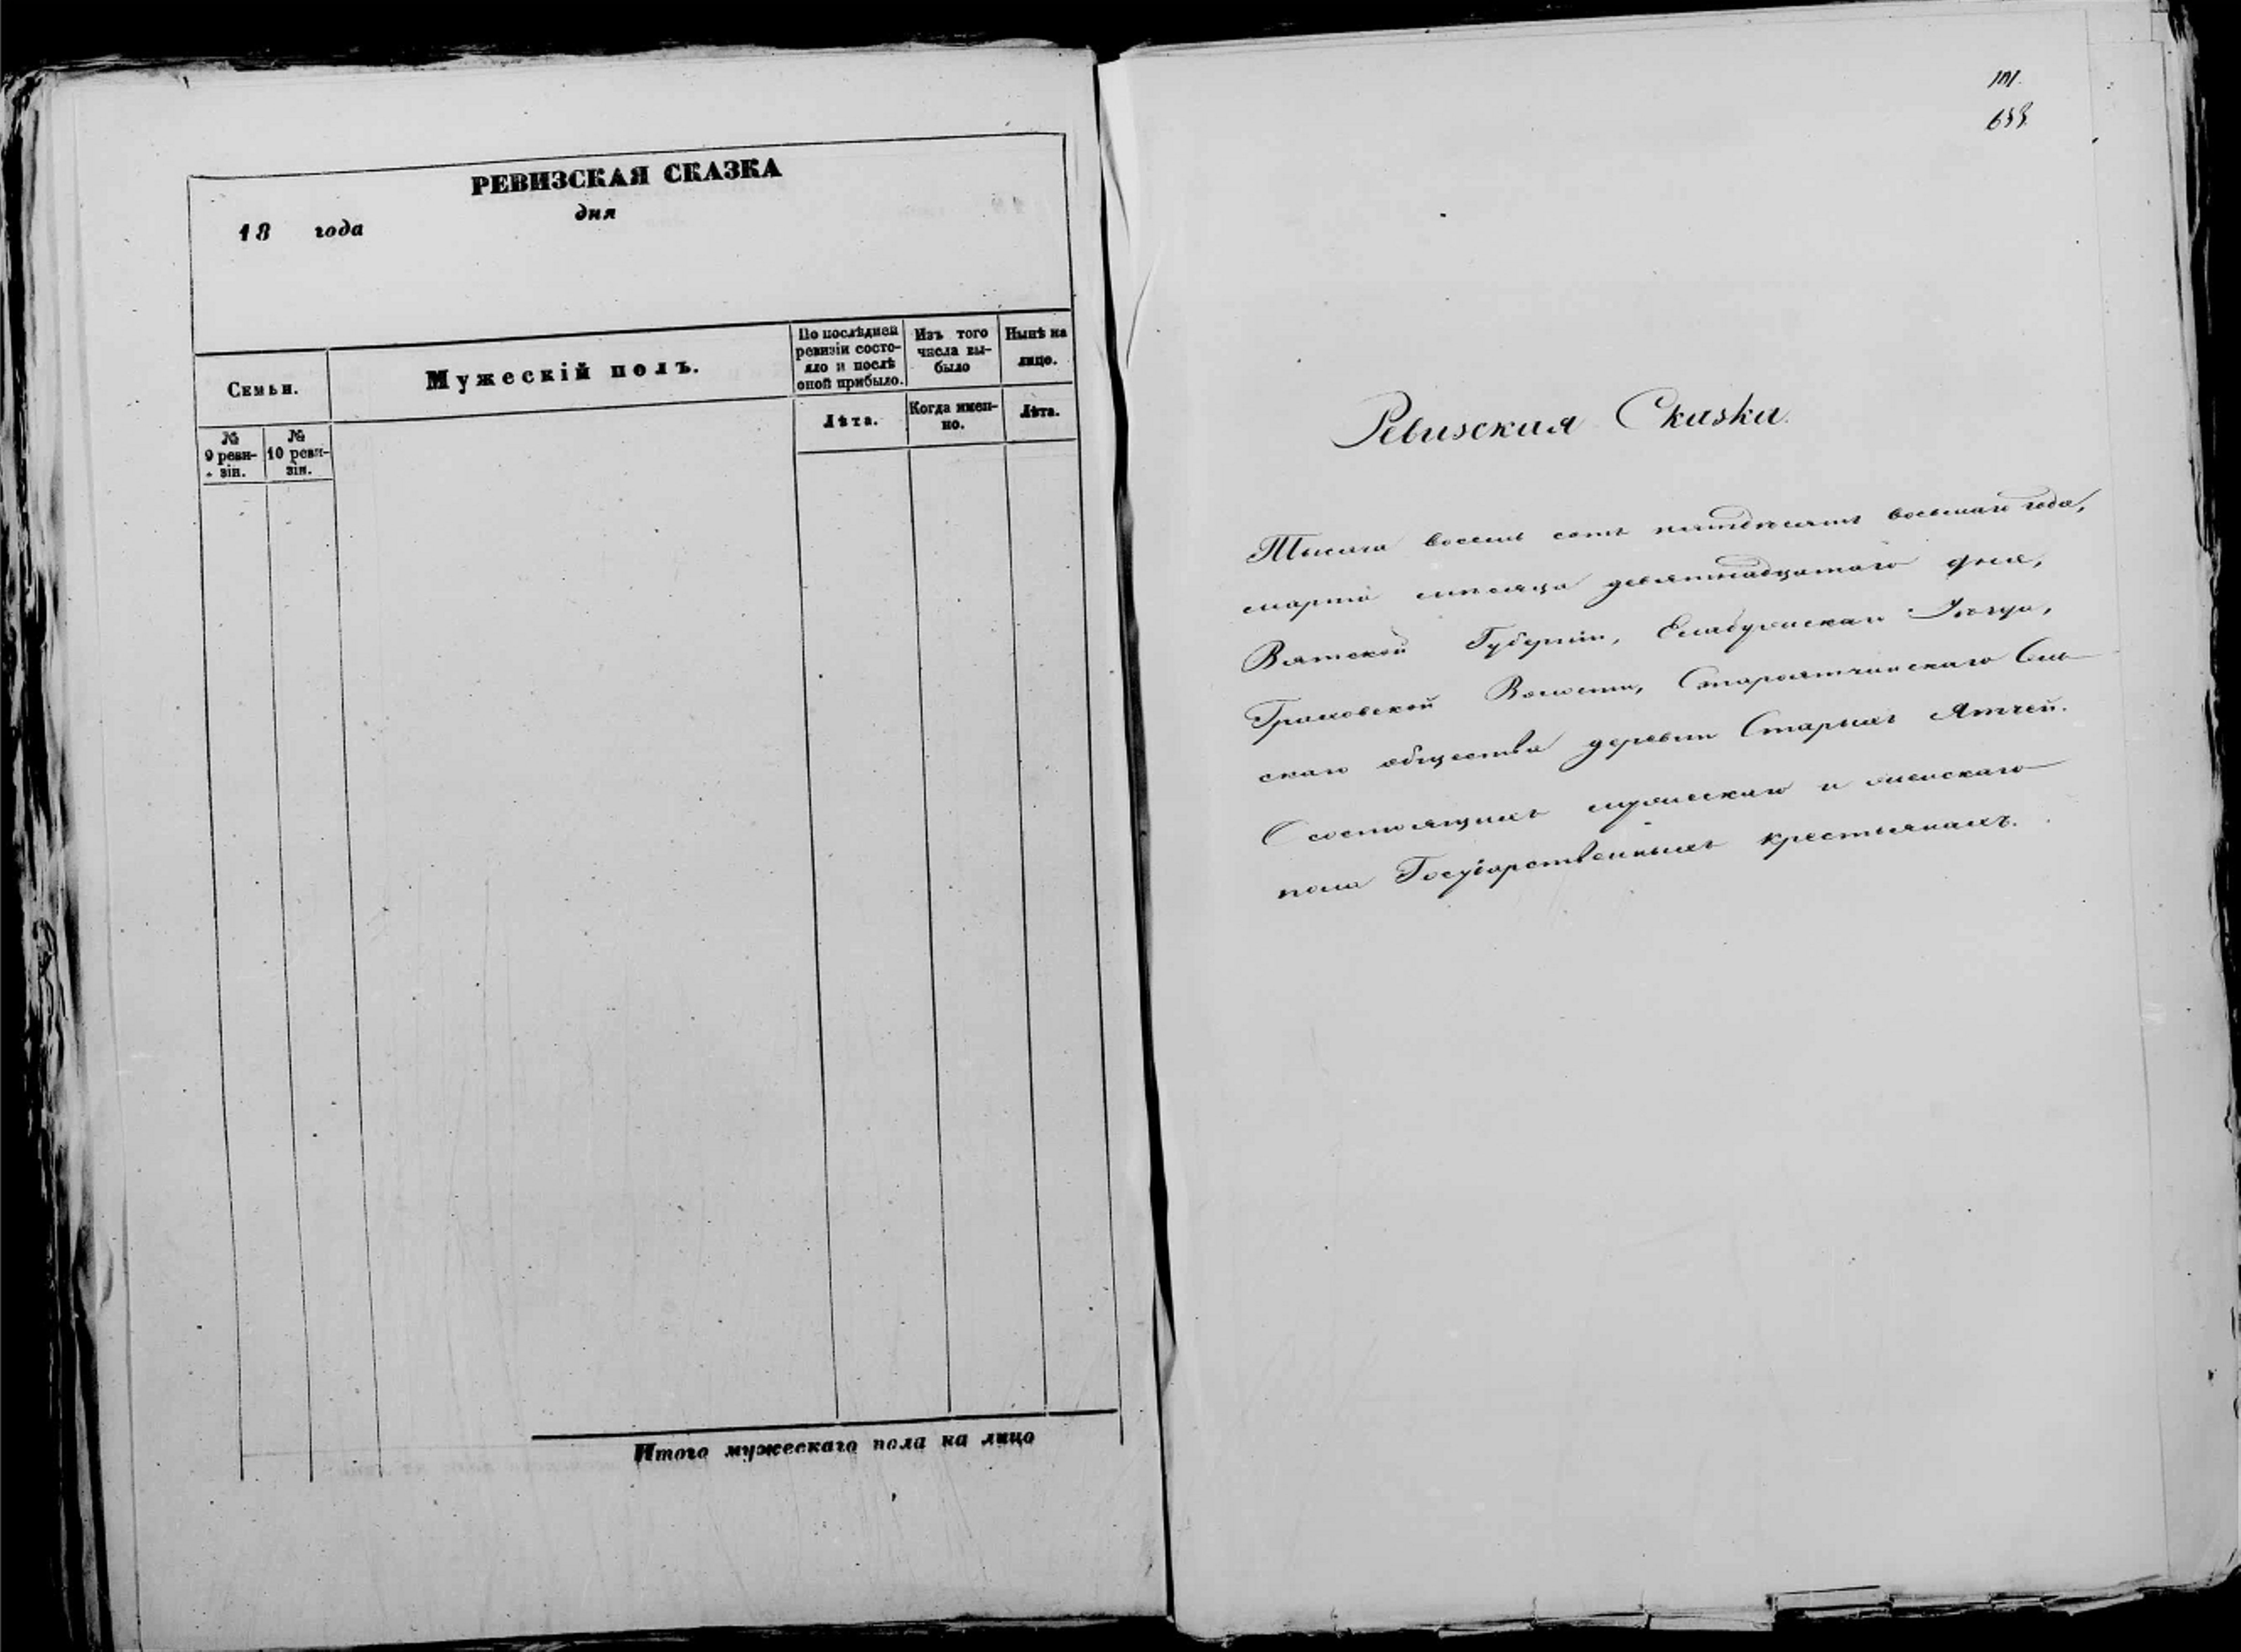 РЕВИЗСКАЯ СКАЗКА
дня
18 года
Семьи.
Мужескій полъ.
По послѣдней
ревизіи состо-
яло и послѣ
оной прибыло.
Изъ того
числа вы-
было
Нынѣ на
лицо.
№
9 реви-
зіи.
№
10 реви-
зіи.
Лѣта.
Когда имен-
но.
Лѣта.
Итого мужескаго пола на лицо
101.
Ревизская Сказка.
Тысяча восемь сотъ пятдесятъ восьмаго года,
марта мѣсяца девятнадцатаго дня,
Вятской Губерніи, Елабужскаго Уѣзда,
Граховской Волости, Староятчинскаго Сель
скаго общества деревни Старыхъ Ятчей.
О состоящихъ мужескаго и женскаго
пола Государственныхъ крестьянахъ.